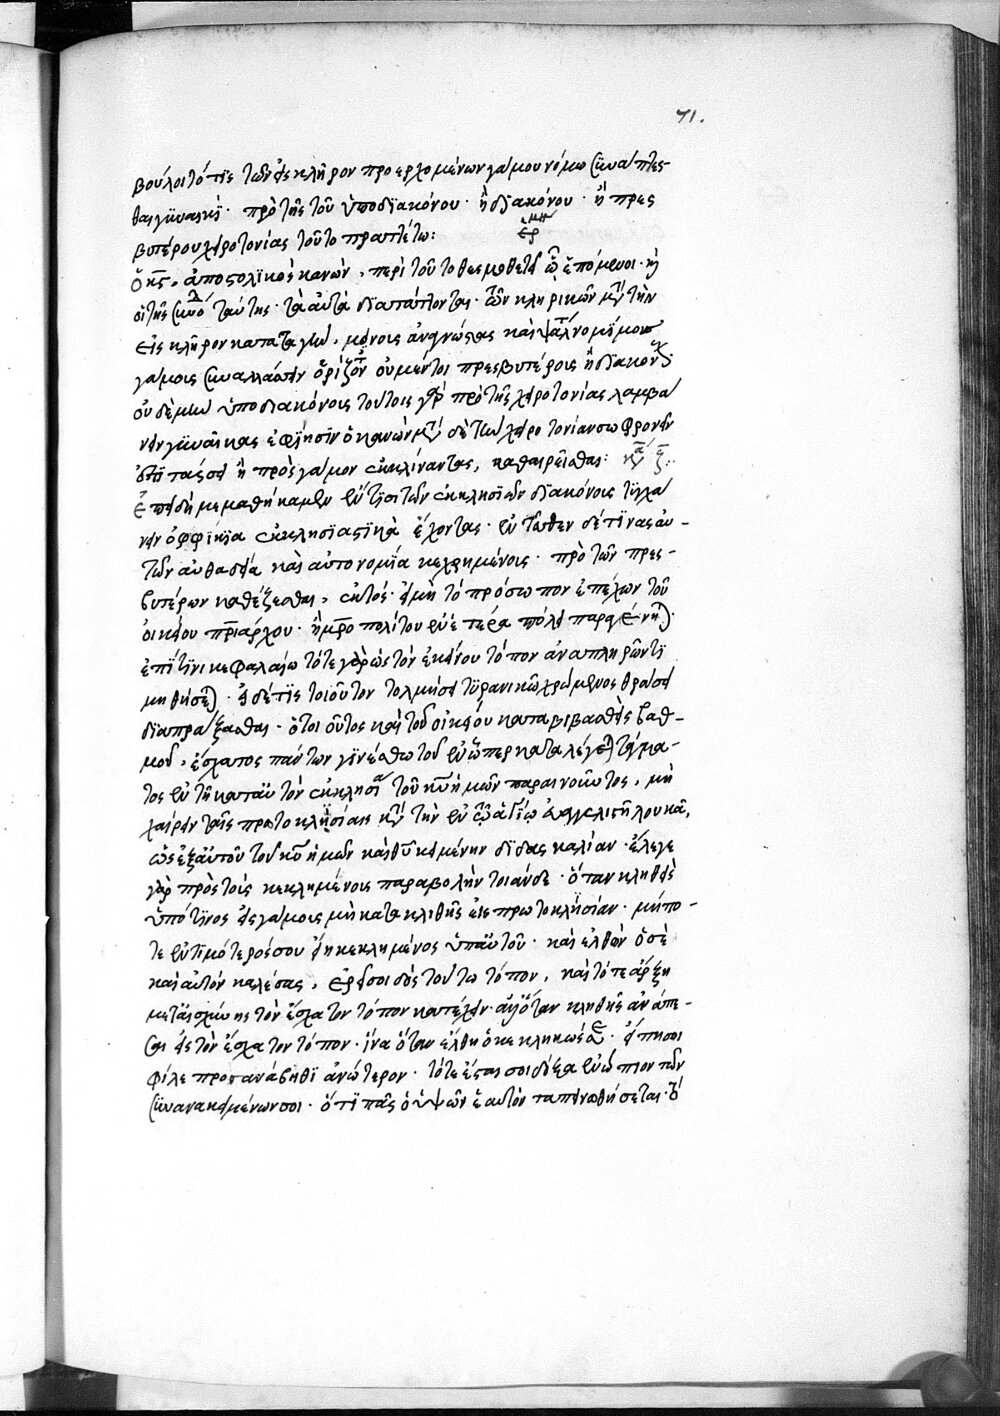 71.
βούλοιτό τις τῶν εἰς κλῆρον προερχομένων γάμου νόμω συνάπτεσ-
θαι γυναικὶ· πρὸ τῆς τοῦ ὑποδιακόνου· ἢ διακόνου· ἢ πρεσ
βυτέρου χειροτονίας τοῦτο πραττέτω:
ἑρμη
ὁ κϛ, ἀποστολικὸς κανὼν, περὶ τούτου θεσμοθετεῖ ὧ ἑπόμενοι· καὶ
οἱ τῆς συνό ταύτης· τὰ αὐτὰ διατάττονται· τῶν κληρικῶν μετὰ τὴν
εἰς κλῆρον καταταγὴν, μόνοις ἀναγνώσταις καὶ ψάλταις νομίμοις
γάμοις συναλλάσσειν ὁρίζον οὐ μέντοι πρεσβυτέροις ἢ διακόν
οὐδὲ μὴν ὑποδιακόνοις τούτοις γὰρ πρὸ τῆς χειροτονίας λαμβά
νειν γυναῖκας ἐφίησιν ὁ κανὼν μετὰ δὲ τὴν χειροτονίαν σωφρονεῖν
ἐπιτάσσει ἢ πρὸς γάμον ἐκκλίναντας, καθαιρεῖσθαι: κα ζ:
Ἐπειδὴ μεμαθήκαμεν ἔν τισι τῶν ἐκκλησιῶν διακόνοις τυγχά
νειν ὀφφίκια ἐκκλησιαστικὰ ἔχοντας· ἐντεῦθεν δέ τινας αὐ-
τῶν αὐθαδεία καὶ αὐτονομία κεχρημένοις· πρὸ τῶν πρεσ-
βυτέρων καθέζεσθαι, ἐκτὸς· εἰ μὴ τὸ πρόσωπον ἐπέχων τοῦ
οἰκείου πριάρχου· ἢ μροπολίτου ἐν ἑτέρα πόλει παραγένηται
ἐπί τινι κεφαλαίω τότε γὰρ ὡς τὸν ἐκείνου τόπον ἀναπληρῶν τι
μηθήσεται· εἰ δέ τις τοιοῦτον τολμήσει τυρανικῶ χρώμενος θράσει
διαπράξασθαι· ὁ τοιοῦτος καὶ τοῦ οἰκείου καταβιβασθεὶς βαθ-
μοῦ, ἔσχατος πάντων γινέσθω τοῦ ἐν ὧπερ καταλέγεται τάγμα-
τος ἐν τῆ κατ' αὐτὸν ἐκκλησία τοῦ κυ ἡμῶν παραινοῦντος, μὴ
χαίρειν ταῖς πρωτοκλησίαις κατὰ τὴν ἐν τῶ ἁγίω εὐαγγελιστῆ λουκᾶ,
ὡς ἐξ αὐτοῦ τοῦ κυ ἡμῶν καὶ θυ κειμένην διδασκαλίαν· ἔλεγε
γὰρ πρὸς τοὺς κεκλημένοις παραβολὴν τοιάνδε· ὅταν κληθεὶς
ὑπό τινος εἰς γάμοις μὴ κατακλιθῆς εἰς πρωτοκλησίαν· μήπο-
τε ἐντιμότερός σου εἴη κεκλημένος ὑπ' αὐτοῦ· καὶ ἐλθὼν ὁ σὲ
καὶ αὐτὸν καλέσας, ἐρεῖ σοι δὸς τούτω τόπον, καὶ τότε ἄρξη
μετ' αἰσχύνης τὸν ἔσχατον τόπον κατέχειν· ἀλλ' ὅταν κληθῆς ἀνάπε-
σαι εἰς τὸν ἔσχατον τόπον· ἵνα ὅταν ἔλθη ὁ κεκληκώς σε· εἴπη σοι
φίλε προσανάβηθι ἀνώτερον· τότε ἔσται σοι δόξα ἐνώπιον τῶν
συνανακειμένων σοι· ὅτι πᾶς ὁ ὑψῶν ἑαυτὸν ταπεινωθήσεται· ὁ